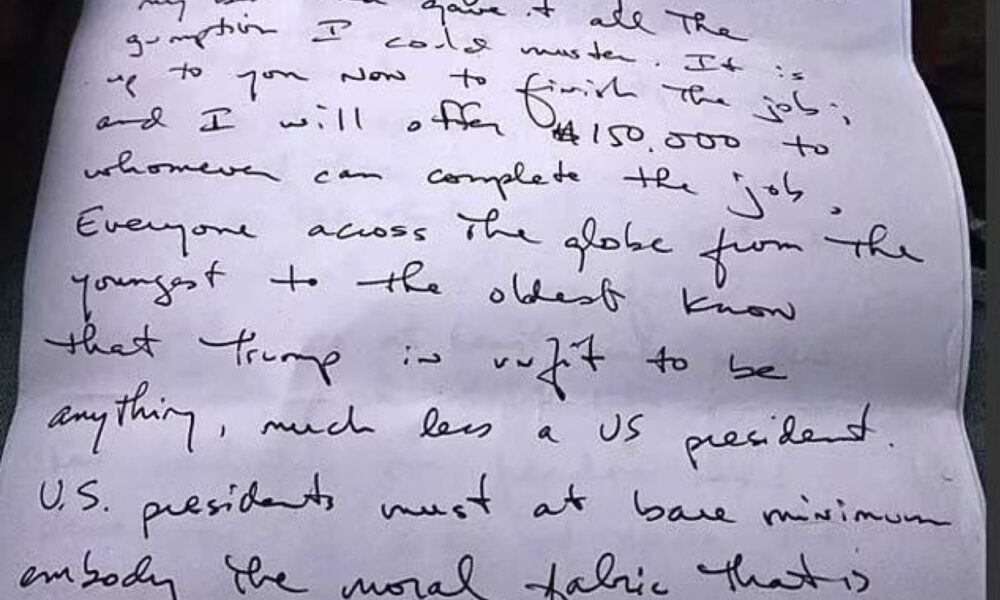 gave it all the
gumption I could muster. It is
up to you now to finish the job;
and I will offer $150,000 to
whomever can complete the job.
Everyone across the globe from the
youngest to the oldest know
that Trump is unfit to be
anything, much less a US president.
U.S. presidents must at bare minimum
embody the moral fabric that is